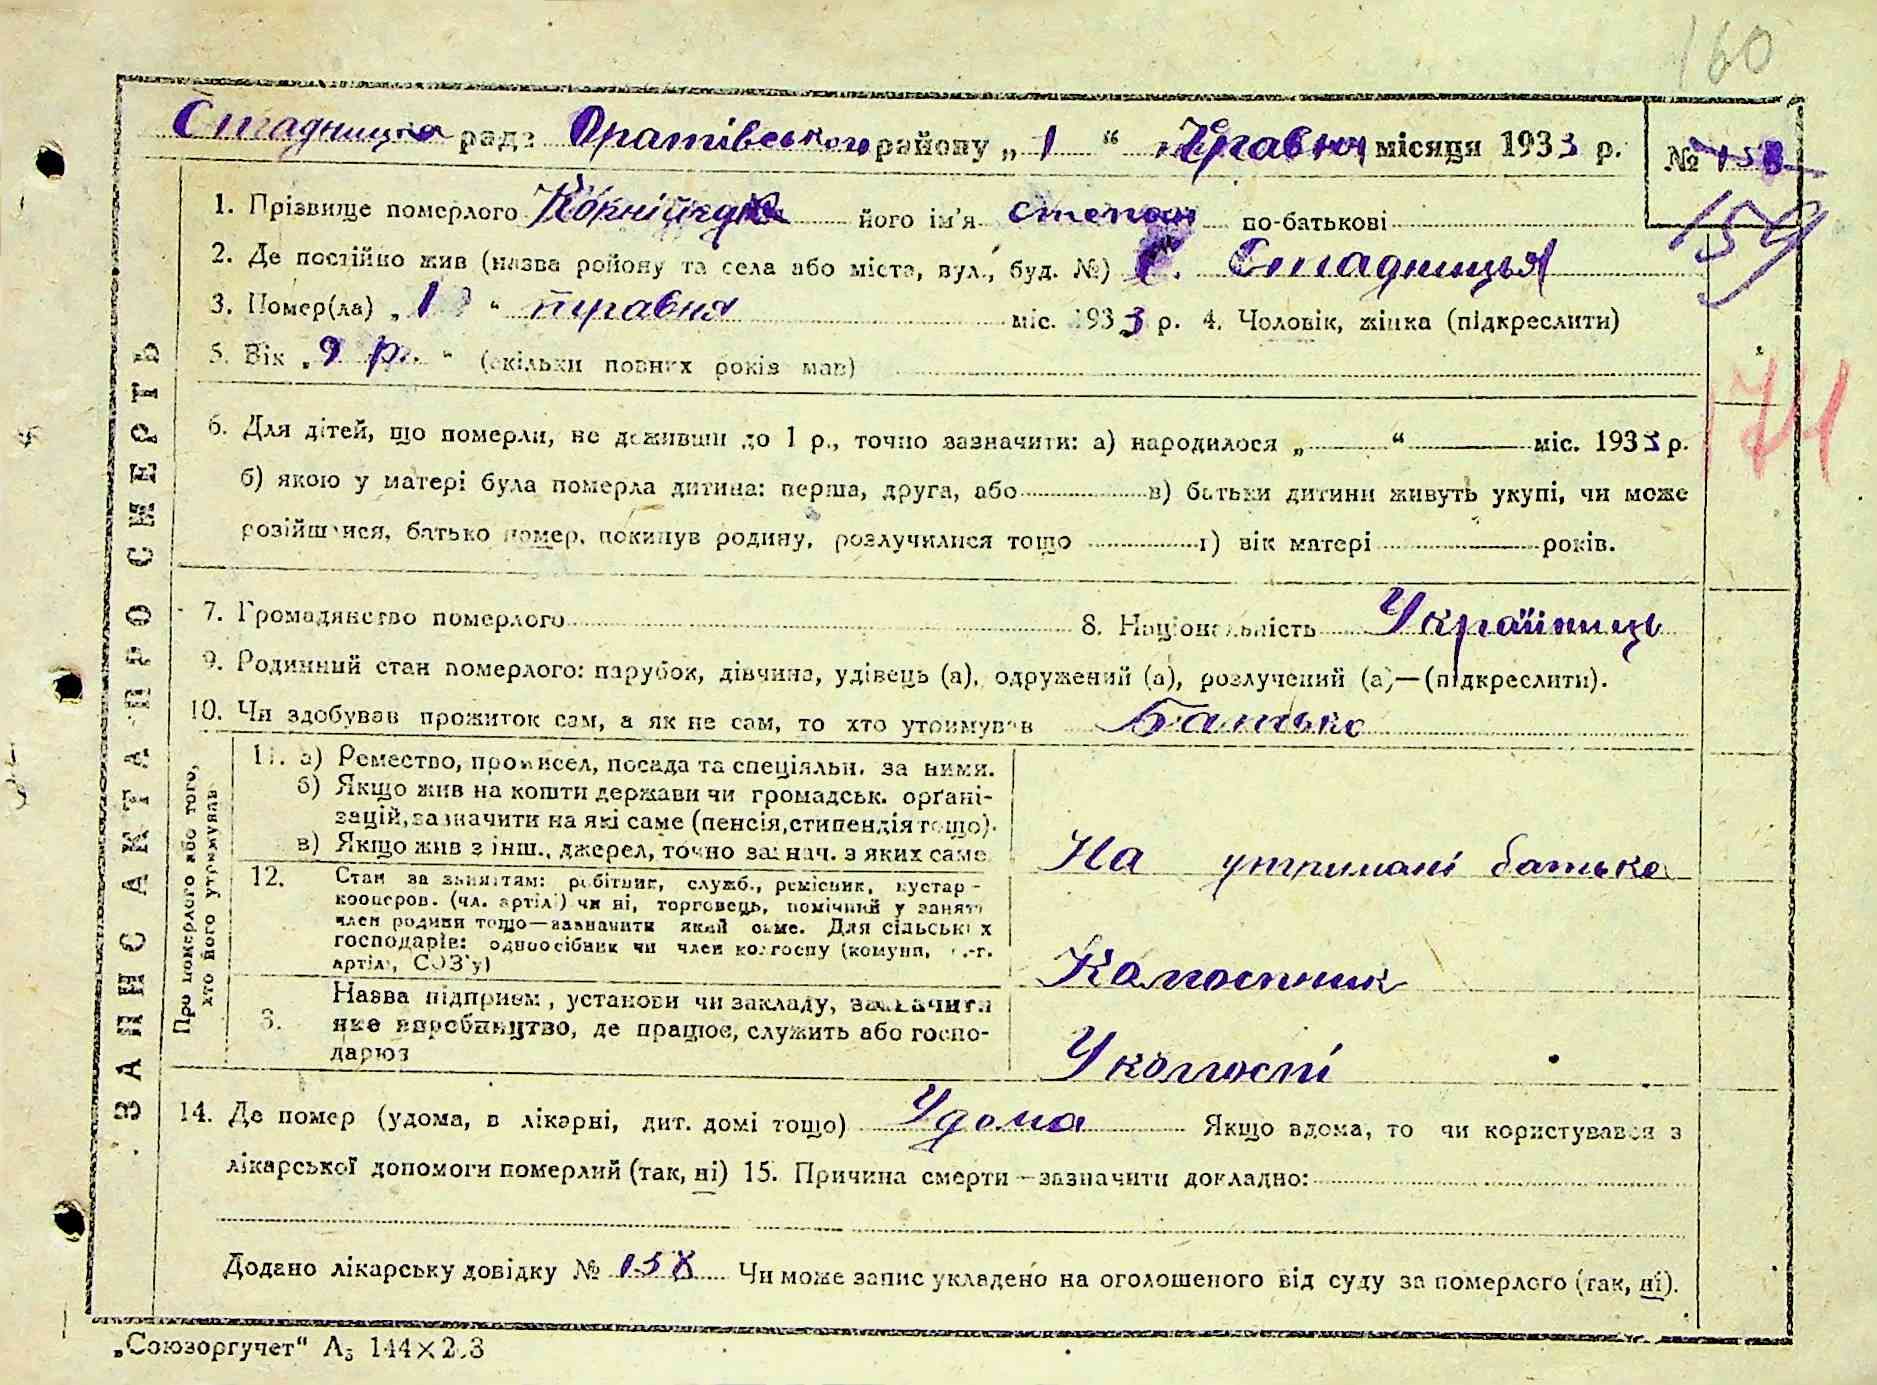 160
Стадницька рада Оратівського району „ 1 “ Травня місяця 1933 р.
№ 158
159
1. Прізвище померлого його ім'я степан по-батькові
2. Де постійно жив (назва району та села або міста, вул., буд. №) с. Стадниця
3. Помер(ла) „ 1 “ травня міс. 1933 р. 4. Чоловік, жінка (підкреслити)
5. Вік „ 9 р. “ (скільки повних років мав)
171
6. Для дітей, що померли, не доживши до 1 р., точно зазначити: а) народилося „ “ міс. 1933 р.
б) якою у матері була померла дитина: перша, друга, або в) батьки дитини живуть укупі, чи може
розійшлися, батько помер, покинув родину, розлучилися тощо г) вік матері років.
7. Громадянство померлого 8. Національність Українець
9. Родинний стан померлого: парубок, дівчина, удівець (а), одружений (а), розлучений (а)—(підкреслити).
10. Чи здобував прожиток сам, а як не сам, то хто утримував Батько
ЗАПИС АКТА ПРО СМЕРТЬ
Про померлого або того, хто його утримував
11. а) Ремество, промисел, посада та спеціяльн. за ними.
б) Якщо жив на кошти держави чи громадськ. орґані-
зацій, зазначити на які саме (пенсія, стипендія тощо).
в) Якщо жив з інш., джерел, точно зазнач. з яких саме
На утримані батька
12. Стан за заняттям: робітник, служб., ремісник, кустар-
кооперов. (чл. артілі) чи ні, торговець, помічний у занятт
член родини тощо—зазначити який саме. Для сільських
господарів: одноосібник чи член колгоспу (комуни, с.-г.
артілі, СОЗ'у)
Колгоспник
Назва підприєм., установи чи закладу, зазначити
3. яке виробництво, де працює, служить або госпо-
дарює
У колгоспі
14. Де помер (удома, в лікарні, дит. домі тощо) Удома Якщо вдома, то чи користувався з
лікарської допомоги померлий (так, ні) 15. Причина смерти—зазначити докладно:
Додано лікарську довідку № 158 Чи може запис укладено на оголошеного від суду за померлого (так, ні).
„Союзоргучет“ А5 144×2.3